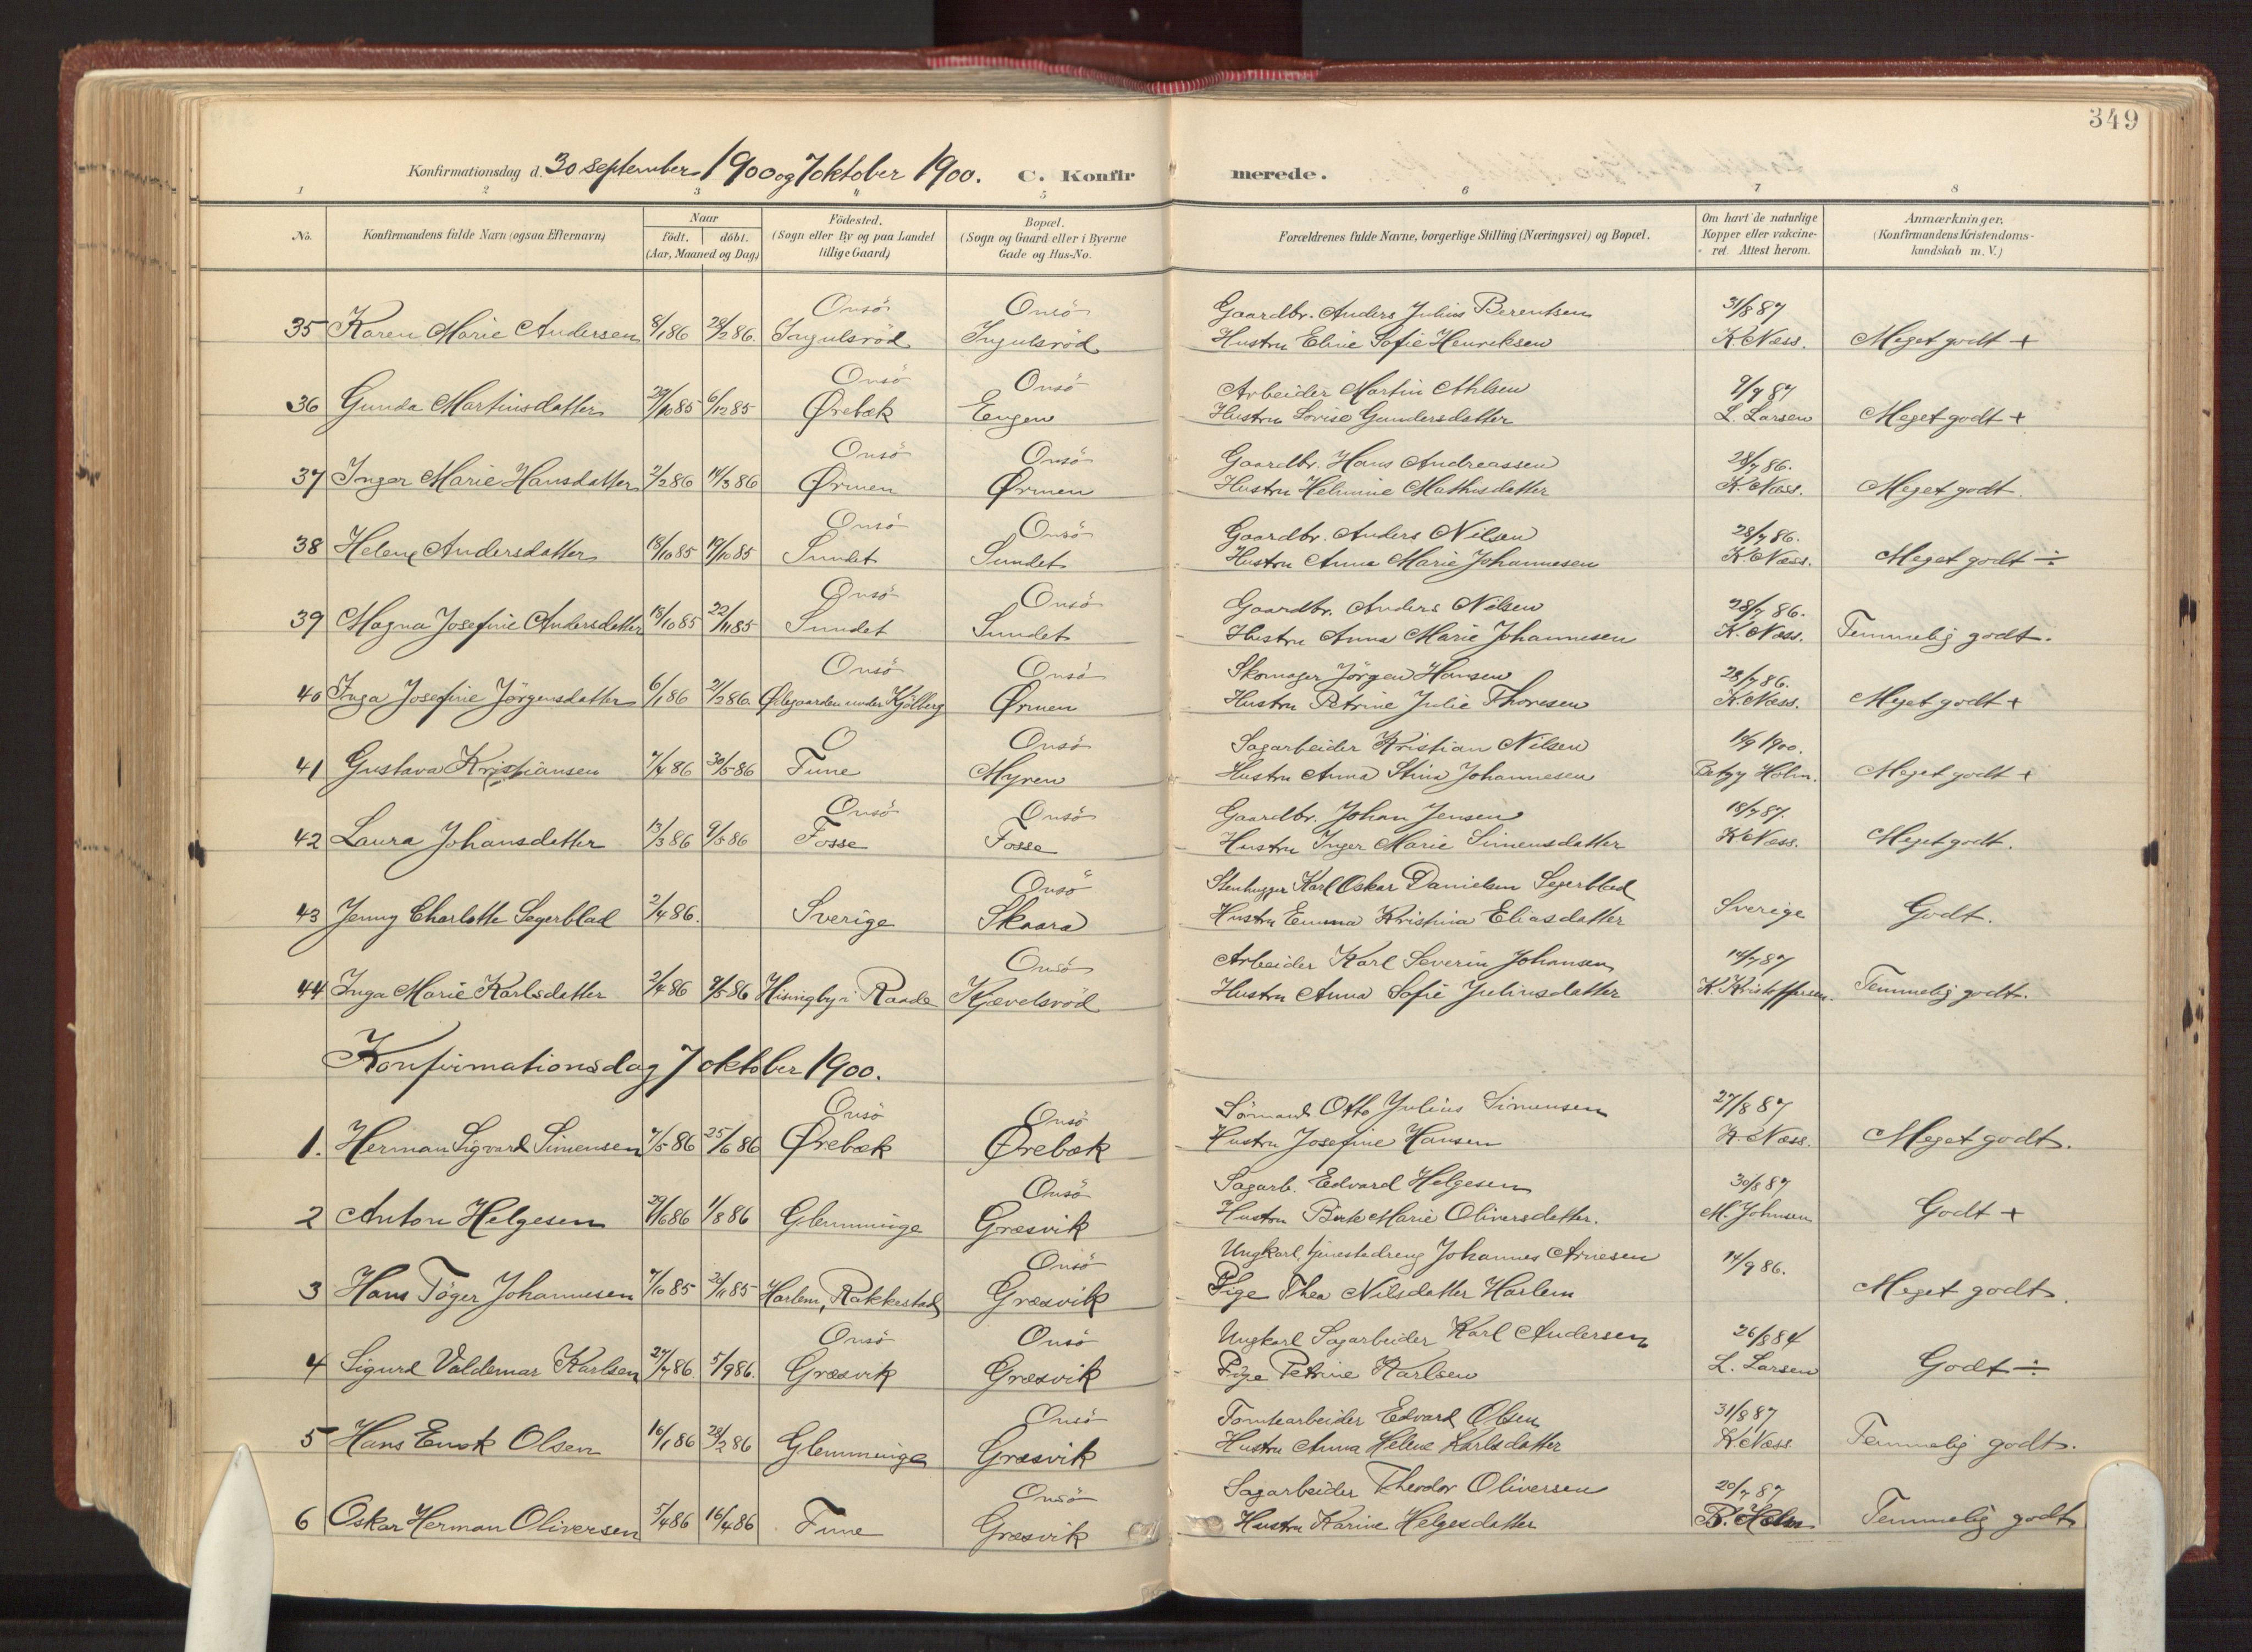 349
Konfirmationsdag d. 30 september 1900 og 7 oktober 1900. C. Konfirmerede.
1 2 3 4 5 6 7 8
No. Konfirmandens fulde Navn (ogsaa Efternavn) Naar födt. döbt. (Aar, Maaned og Dag) Födested. (Sogn eller By og paa Landet tillige Gaard) Bopæl. (Sogn og Gaard eller i Byerne Gade og Hus-No. Forældrenes fulde Navne, borgerlige Stilling (Næringsvei) og Bopæl. Om havt de naturlige Kopper eller vakcineret. Attest herom. Anmærkninger. (Konfirmandens Kristendomskundskab m. V.)
Onsö Onsö Gaardbr. Anders Julius Berentsen 31/8 87
35 Karen Marie Andersen 8/1 86 28/2 86. Ingulsröd Ingulsröd Hustru Eline Sofie Henriksen K. Næss. Meget godt +
Onsö Onsö Arbeider Martin Athlsen 9/7 87
36 Gunda Martinsdatter 29/10 85 6/12 85 Ørebæk Engen Hustru Lovise Gundersdatter L. Larsen Meget godt +
Onsö Onsö Gaardbr. Hans Andreassen 28/7 86.
37 Inger Marie Hansdatter 2/2 86 14/3 86 Ørmen Ørmen Hustru Helmine Mathisdatter K. Næss. Meget godt.
Onsö Onsö Gaardbr. Anders Nilsen 28/7 86.
38 Helene Andersdatter 18/10 85 19/10 85 Sundet Sundet Hustru Anna Marie Johannesen K. Næss. Meget godt ÷
Onsö Onsö Gaardbr. Anders Nilsen 28/7 86.
39 Magna Josefine Andersdatter 18/10 85 22/11 85 Sundet Sundet Hustru Anna Marie Johannesen K. Næss. Temmelig godt.
Onsö Onsö Skomager Jörgen Hansen 28/7 86.
40 Inga Josefine Jörgensdatter 6/1 86 21/2 86. Ødegaarden under Kjölberg Ørmen Hustru Petrine Julie Thoresen K. Næss. Meget godt +
O Onsö Sagarbeider Kristian Nilsen 14/9 1900.
41 Gustava Kristiansen 7/4 86 30/5 86 Tune Myren Hustru Anna Stina Johannesen Betzy Holm. Meget godt +
Onsö Onsö Gaardbr. Johan Jensen 18/7 87.
42 Laura Johansdatter 13/3 86 9/5 86 Fosse Fosse Hustru Inger Marie Simensdatter K. Næss. Meget godt.
Onsö Stenhugger Karl Oskar Danielsen Segerblad
43 Jenny Charlotte Segerblad 2/4 86. Sverige Skaara Hustru Emma Kristina Eliasdatter Sverige Godt.
Onsö Arbeider Karl Severin Johansen 14/7 87
44 Inga Marie Karlsdatter 2/4 86 9/5 86 Hisingby i Raade Kjævelsröd Hustru Anna Sofie Juliusdatter K. Kristoffersen. Temmelig godt.
Konfirmationsdag 7 oktober 1900.
Onsö Onsö Sömand Otto Julius Simensen 27/8 87
1. Herman Sigvard Simensen 7/5 86 25/6 86 Ørebæk Ørebæk Hustru Josefine Hansen K. Næss. Meget godt.
Onsö Sagarb. Edvard Helgesen 30/8 87
2 Anton Helgesen 29/6 86 1/8 86 Glemminge Græsvik Hustru Berte Marie Oliversdatter. M. Johnsen Godt +
Onsö Ungkarl, tjenestedreng Johannes Arnesen 14/9 86.
3 Hans Töger Johannesen 7/10 85 26/11 85 Harlem, Rakkestad Græsvik Pige Thea Nilsdatter Harlem Meget godt.
Onsö Onsö Ungkarl Sagarbeider Karl Andersen 26/8 84
4 Sigurd Valdemar Karlsen 27/7 86. 5/9 86. Græsvik Græsvik Pige Petrine Karlsen L. Larsen Godt ÷
Onsö Tomtearbeider Edvard Olsen 31/8 87
5 Hans Enok Olsen 16/1 86 28/2 86 Glemminge Græsvik Hustru Anna Helene Karlsdatter K. Næss Temmelig godt.
Onsö Sagarbeider Theodor Oliversen 20/7 87
6 Oskar Herman Oliversen 5/4 86 16/4 86 Tune Græsvik Hustru Karine Helgesdatter B. Holm Temmelig godt